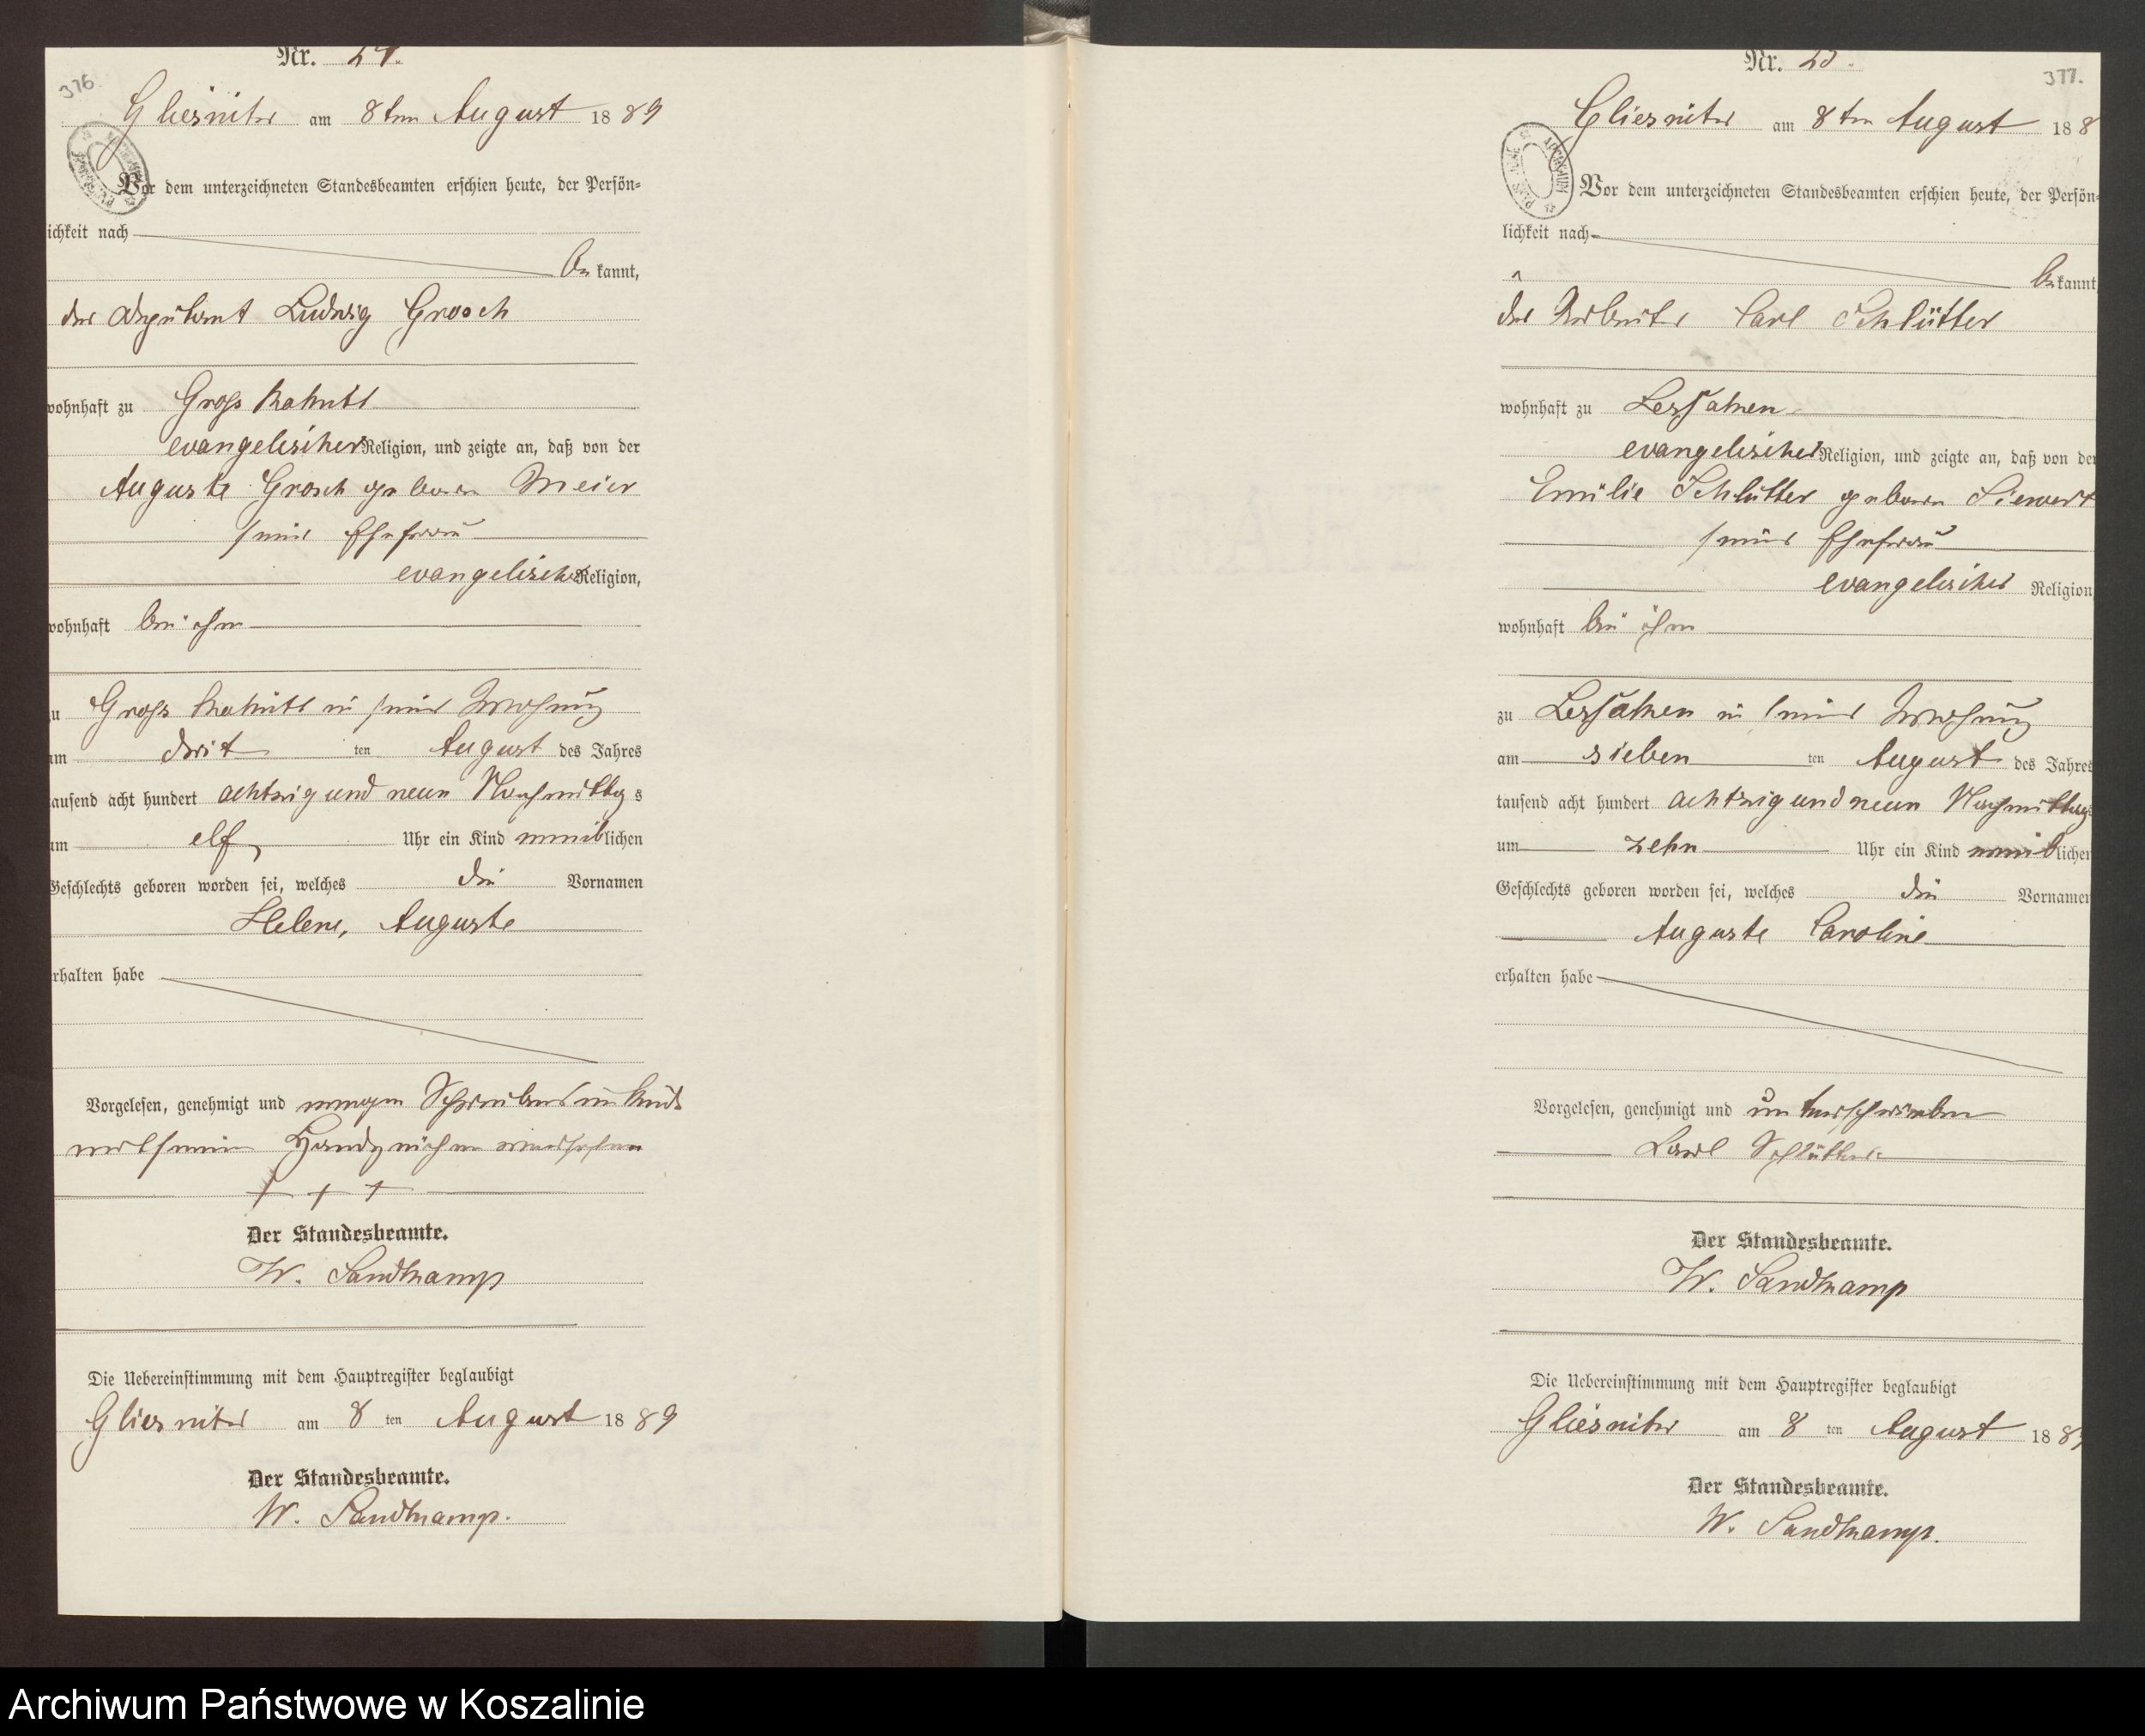 376.
Nr. 24.
Gliesnitz am 8ten August 1889
Vor dem unterzeichneten Standesbeamten erschien heute, der Persön-
ichkeit nach
be kannt,
der Deputant Ludwig Grosch
wohnhaft zu Gross
evangelischer Religion, und zeigte an, daß von der
Auguste Grosch geboren Meier
seiner Ehefrau
evangelischer Religion,
wohnhaft bei ihm
zu Gross in seiner Wohnung
am dritten August des Jahres
tausend acht hundert achtzig und neun Nachmittags
um elf Uhr ein Kind weiblichen
Geschlechts geboren worden sei, welches die Vornamen
Helene, Auguste
erhalten habe
Vorgelesen, genehmigt und wegen Schreibensunkunde
mit seinem Handzeichen versehen
+ + +
Der Standesbeamte.
W. Sandkamp
Die Uebereinstimmung mit dem Hauptregister beglaubigt
Gliesnitz am 8 ten August 1889
Der Standesbeamte.
W. Sandkamp.
377.
Nr. 25.
Gliesnitz am 8ten August 188
Vor dem unterzeichneten Standesbeamten erschien heute, der Persön-
lichkeit nach
be kannt
der Arbeiter Carl Schlütter
wohnhaft zu Lessaken
evangelischer Religion, und zeigte an, daß von der
Emilie Schlütter geboren Siewert
seiner Ehefrau
evangelischer Religion
wohnhaft bei ihm
zu Lessaken in seiner Wohnung
am sieben ten August des Jahres
tausend acht hundert achtzig und neun Nachmittags
um zehn Uhr ein Kind weiblichen
Geschlechts geboren worden sei, welches die Vornamen
Auguste Caroline
erhalten habe
Vorgelesen, genehmigt und unterschrieben
Carl Schlütter
Der Standesbeamte.
W. Sandkamp
Die Uebereinstimmung mit dem Hauptregister beglaubigt
Gliesnitz am 8 ten August 1889
Der Standesbeamte.
W. Sandkamp.
Archiwum Państwowe w Koszalinie